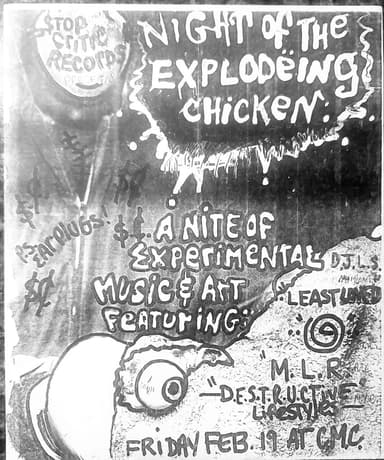 $TOP
CRITIC
RECORDS
NIGHT OF THE
EXPLODËING
CHICKEN:
A NITE OF
EXPERIMENTAL
MUSIC & ART
FEATURING:
D.J.L.S
LEAST LOVED
"M.L.R.
D.E.S.T.R.U.C.T.I.V.E"
Lifestyles
FRIDAY FEB. 19 AT C.M.C.